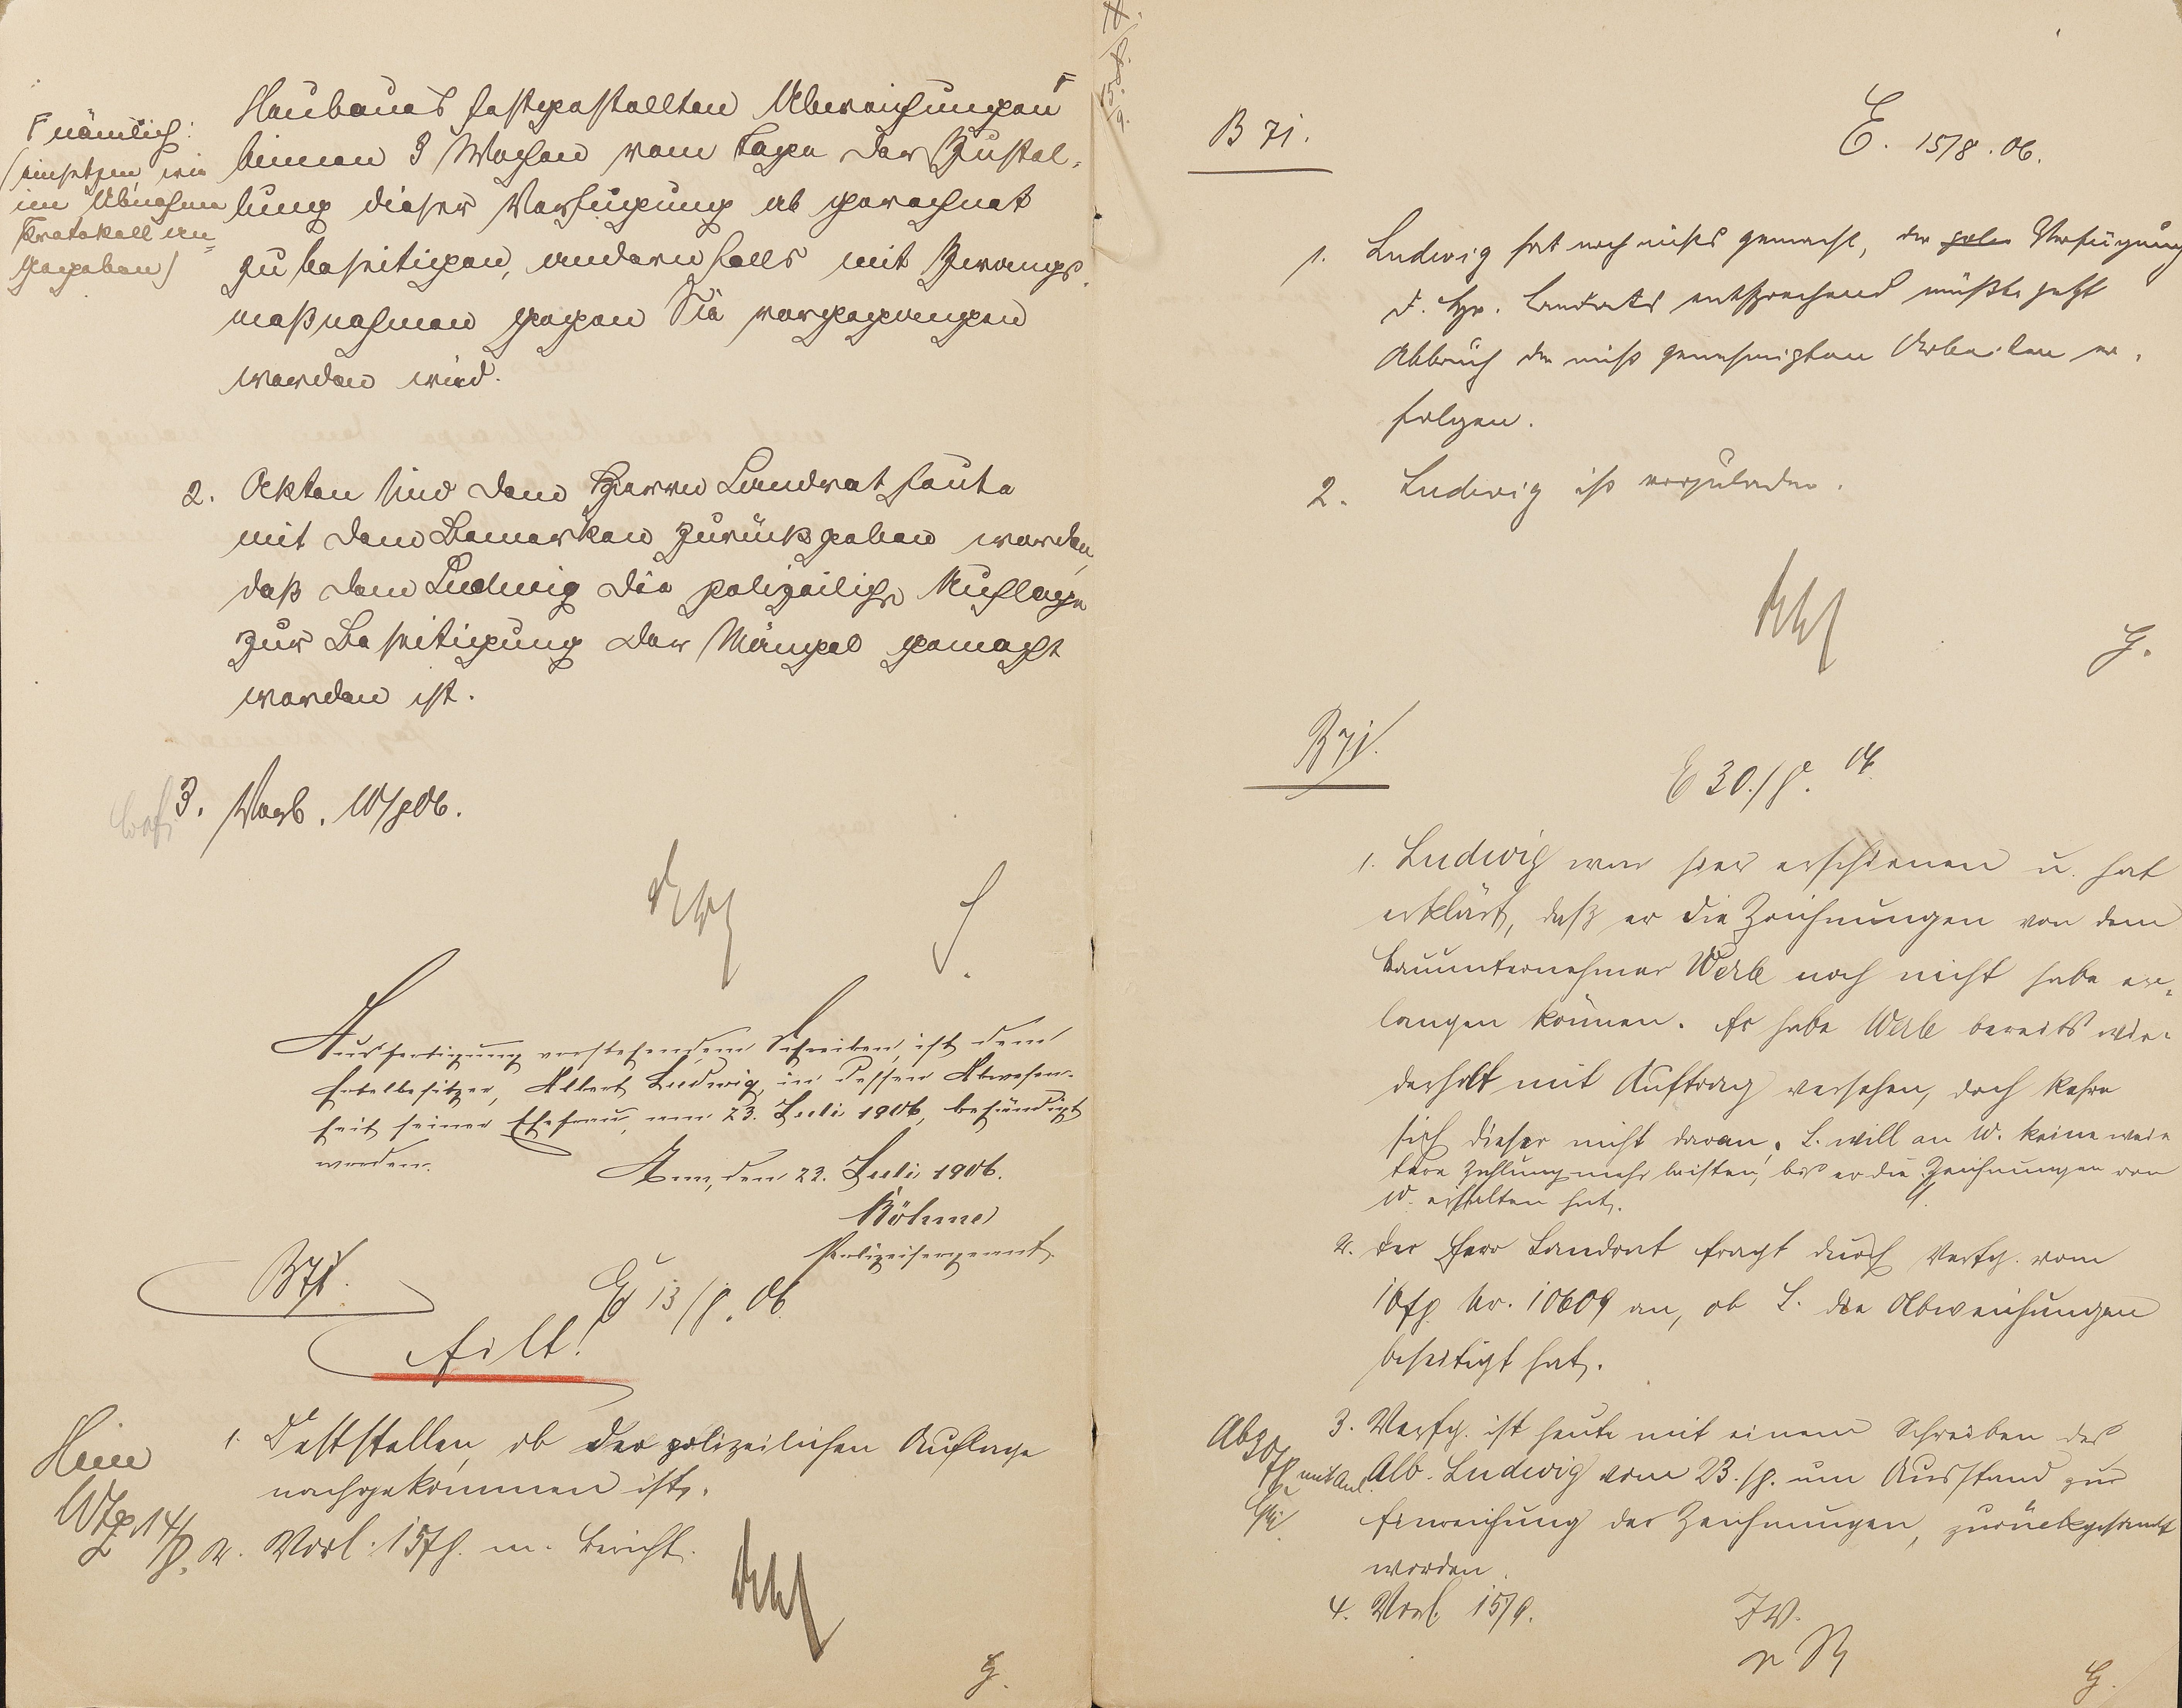 Neubaues festgestellten Abweichungen F
F nämlich:
(einsetzen, wie
im Abnahme
Protokoll an-
gegeben)
binnen 3 Wochen vom Tage der Zustel-
lung dieser Verfügung ab gerechnet
zu beseitigen, andernfalls mit Zwangs-
maßnahmen gegen Sie vorgegangen
werden wird.
2. Akten sind dem Herrn Landrat heute
mit dem Bemerken zurückgeben worden,
daß dem Ludwig die polizeiliche Auflage
zur Beseitigung der Mängel gemacht
worden ist.
3. Vorl. 10/8 06.
Ausfertigung vorstehendem Schreiben, ist dem
Hotelbesitzer, Albert Ludwig, in dessen Abwesen-
heit seiner Ehefrau, am 23. Juli 1906, behändigt
worden.
den 23. Juli 1906.
Böhme
Polizeisergeant.
B 71.
E 13/8. 06.
Eilt!
1. Feststellen, ob der polizeilichen Auflage
nachgekommen ist.
2. Vorl. 15/8. m. Bericht.
G.
B 71.
E. 15/8. 06.
1. Ludwig hat noch nichts gemacht, der Verfügung
d. Hr. Landrats entsprechend müßte jetzt
Abbruch der nicht genehmigten Arbeiten er-
folgen.
2. Ludwig ist vorzuladen.
G.
B 71.
E 30./8. 06
1. Ludwig war hier erschienen u. hat
erklärt, daß er die Zeichnungen von dem
Bauunternehmer Werle noch nicht habe er-
langen können. Er habe Werle bereits wie-
derholt mit Auftrag versehen, doch kehre
sich dieser nicht daran. L. will an W. keine wei-
tere Zahlung mehr leisten, bis er die Zeichnungen von
W. erhalten hat.
2. Der Herr Landrat fragt durch Verfg. vom
16/8 Nr. 10609 an, ob L. die Abweichungen
beseitigt hat.
3. Verfg. ist heute mit einem Schreiben des
Alb. Ludwig vom 23./8. um Ausstand zur
Einreichung der Zeichnungen, zurückgesandt
worden.
4. Vorl. 15/9.
I.V.
G.